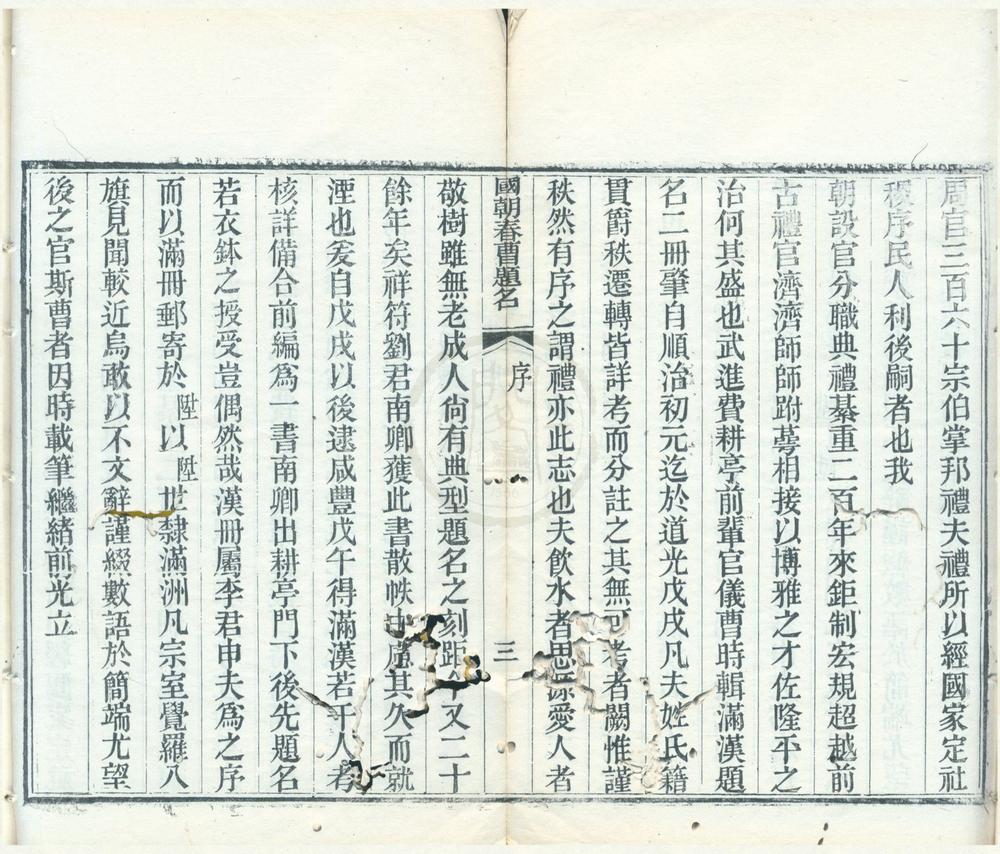 周官三百六十宗伯掌邦禮夫禮所以經國家定社
稷序民人利後嗣者也我
朝設官分職典禮綦重二百年來鉅制宏規超越前
古禮官濟濟師師跗萼相接以博雅之才佐隆平之
治何其盛也武進費耕亭前輩官儀曹時輯滿漢題
名二冊肇自順治初元迄於道光戊戌凡夫姓氏籍
貫爵秩遷轉皆詳考而分註之其無可考者闕惟謹
秩然有序之謂禮亦此志也夫飲水者思源愛人者
國朝春曹題名
序
三
敬樹雖無老成人尙有典型題名之刻距今又二十
餘年矣祥符劉君南卿獲此書散帙中慮其久而就
湮也爰自戊戌以後逮咸豐戊午得滿漢若干人考
核詳備合前編爲一書南卿出耕亭門下後先題名
若衣鉢之授受豈偶然哉漢冊屬李君申夫爲之序
而以滿冊郵寄於陞以陞世隸滿洲凡宗室覺羅八
旗見聞較近烏敢以不文辭謹綴數語於簡端尤望
後之官斯曹者因時載筆繼緒前光立